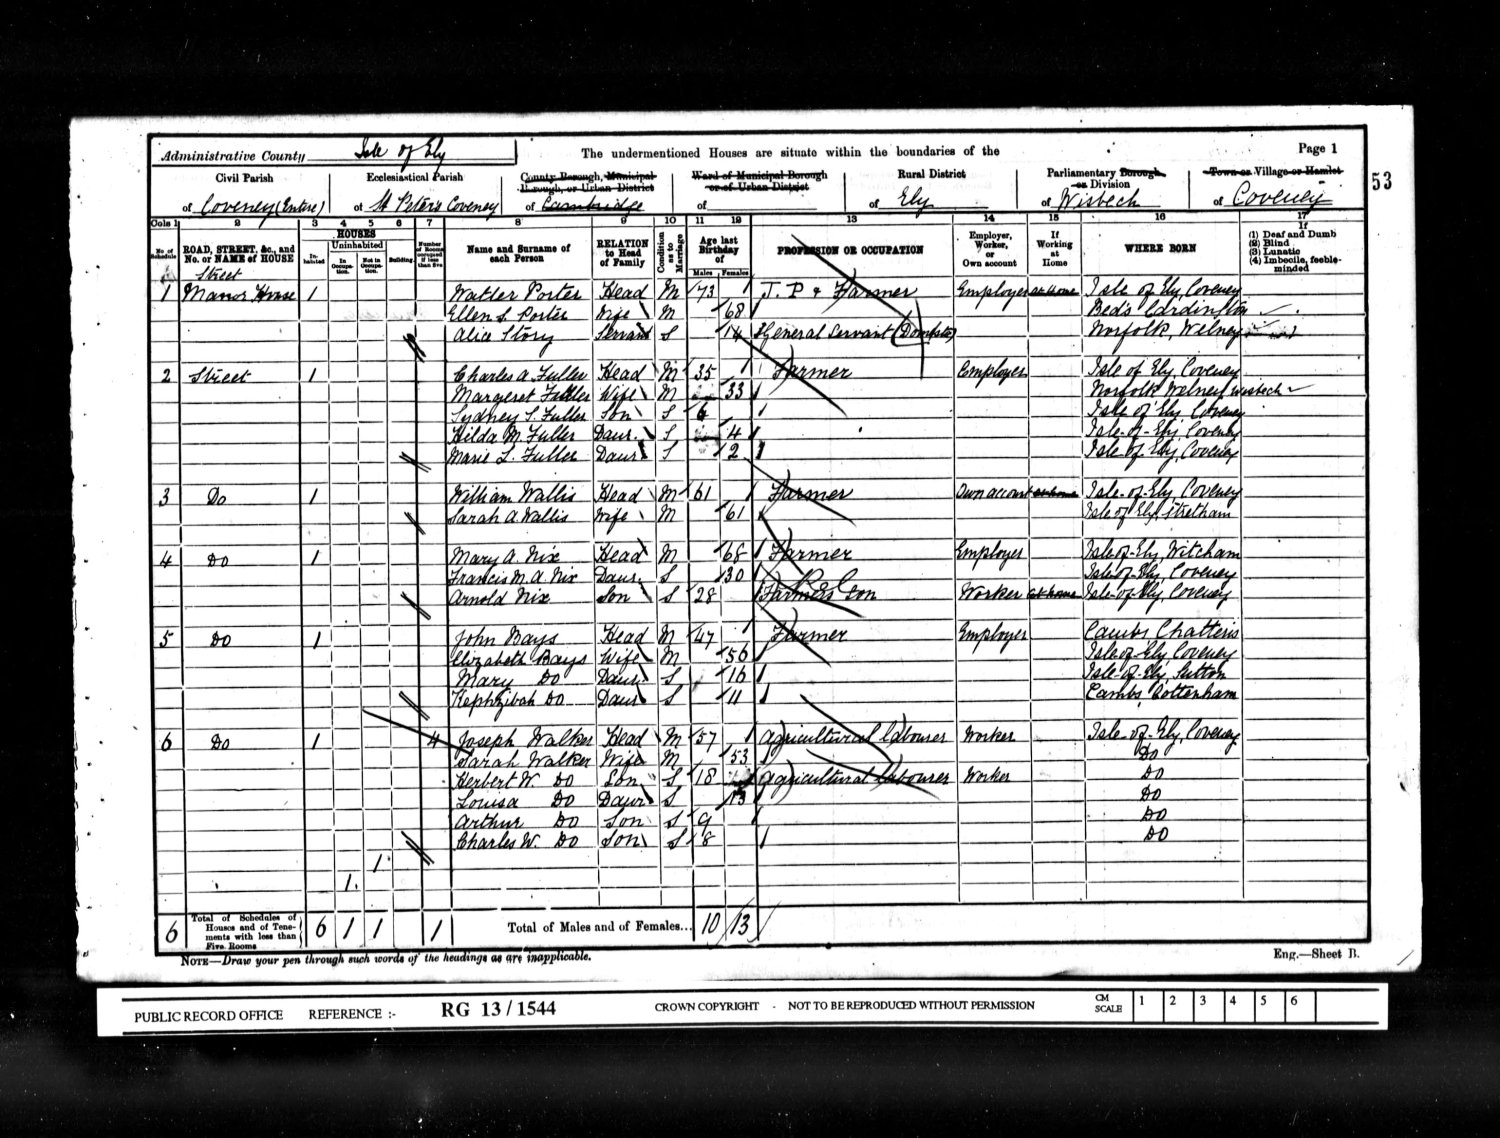 Administrative County Isle of Ely The undermentioned Houses are situate within the boundaries of the Page 1
53
Civil Parish Ecclesiastical Parish County Borough, Municipal Borough, or Urban District Ward of Municipal Borough or of Urban District Rural District Parliamentary Borough or Division Town or Village or Hamlet
of Coveney (Entire) of St Peters Coveney of Cambridge of of Ely of Wisbech of Coveney
Cols 1 2 3 4 5 6 7 8 9 10 11 12 13 14 15 16 17
No. of Schedule ROAD, STREET, &c., and No. or NAME of HOUSE HOUSES Inhabited Uninhabited In Occupation. Not in Occupation. Building Number of Rooms occupied if less than five Name and Surname of each Person RELATION to Head of Family Condition as to Marriage Age last Birthday of Males Females PROFESSION OR OCCUPATION Employer, Worker, or Own account If Working at Home WHERE BORN If (1) Deaf and Dumb (2) Blind (3) Lunatic (4) Imbecile, feeble-minded
Street
1 Manor House 1 Walter Porter Head M 73 J. P & Farmer Employer at home Isle of Ely, Coveney
Ellen S. Porter Wife M 68 Beds Cardington
Alice Story Servant S 14 General Servant (Domestic) Norfolk, Welney
2 Street 1 Charles A. Fuller Head M 35 Farmer Employer Isle of Ely, Coveney
Margeret Fuller Wife M 33 Norfolk Welney Wisbech
Sydney S. Fuller Son S 6 Isle of Ely, Coveney
Hilda M. Fuller Daur. S 4 Isle-of-Ely, Coveney
Marie L. Fuller Daur S 2 Isle of Ely, Coveney
3 Do 1 William Wallis Head M 61 Farmer Own account at home Isle-of-Ely, Coveney
Sarah A Wallis Wife M 61 Isle of Ely, Stretham
4 Do 1 Mary A. Nix Head M 68 Farmer Employer Isle-of-Ely, Witcham
Francis M. A. Nix Daur. S 30 Isle-of-Ely, Coveney
Arnold Nix Son S 28 Farmers Son Worker at home Isle-of-Ely, Coveney
5 Do 1 John Bays Head M 47 Farmer Employer Cambs, Chatteris
Elizabeth Bays Wife M 56 Isle-of-Ely, Coveney
Mary Do Daur S 16 Isle-of-Ely, Sutton
Hephzibah Do Daur S 11 Cambs, Cottenham
6 Do 1 4 Joseph Walker Head M 57 Agricultural labourer Worker Isle-of-Ely, Coveney
Sarah Walker Wife M 53 Do
Herbert W. Do Son S 18 Agricultural labourer Worker Do
Louisa Do Daur S 13 Do
Arthur Do Son S 9 Do
Charles W. Do Son S 8 Do
1
1
6 Total of Schedules of Houses and of Tenements with less than Five Rooms 6 1 1 1 Total of Males and of Females... 10 13
NOTE—Draw your pen through such words of the headings as are inapplicable. Eng.—Sheet B.
PUBLIC RECORD OFFICE REFERENCE :- RG 13 / 1544 CROWN COPYRIGHT - NOT TO BE REPRODUCED WITHOUT PERMISSION CM SCALE 1 2 3 4 5 6